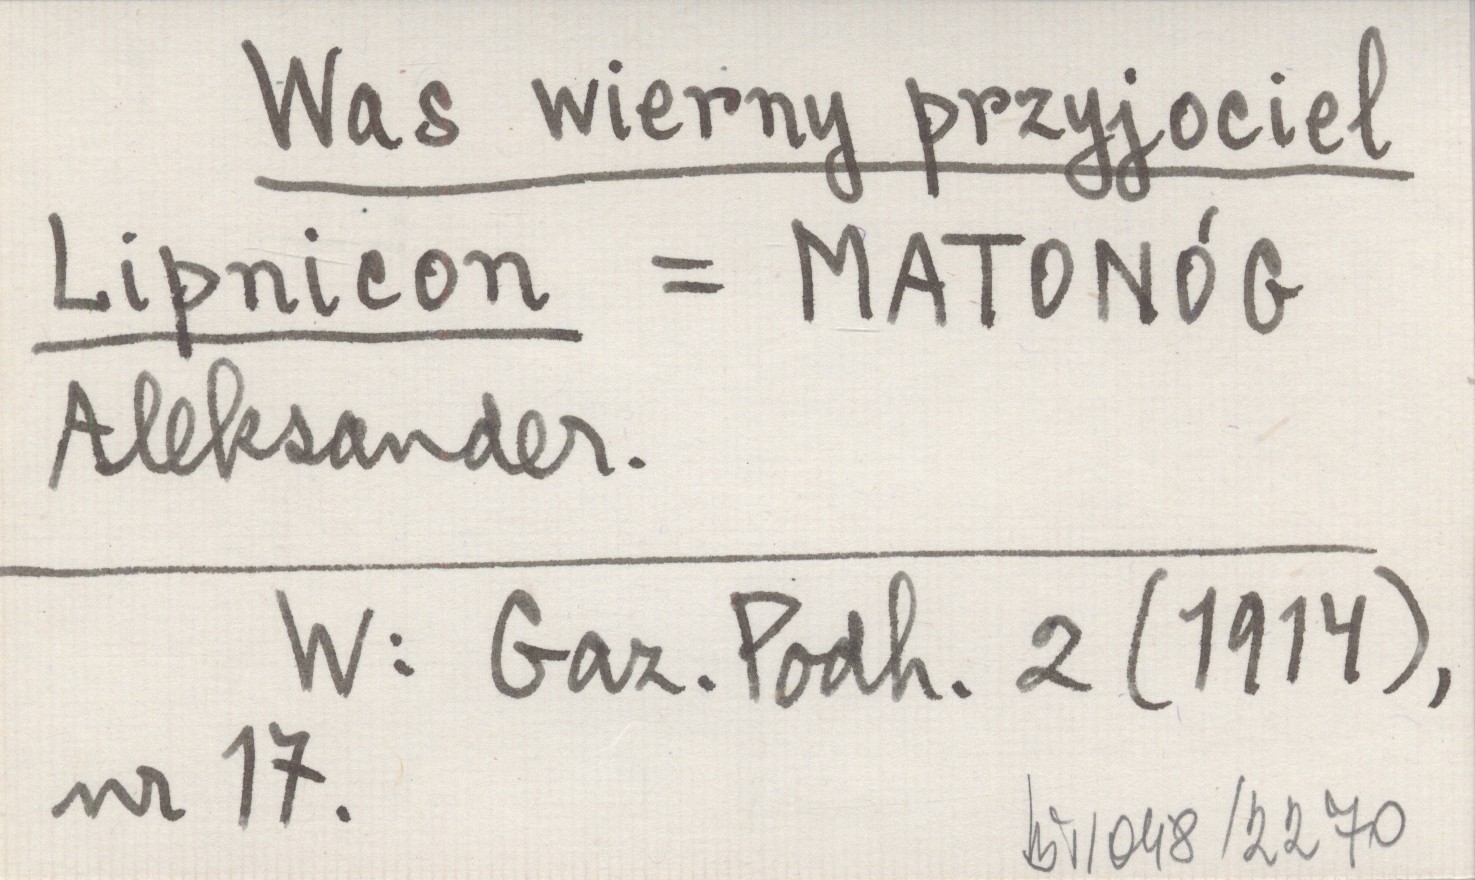 Was wierny przyjociel
Lipnicon = MATONÓG
Aleksander.
W: Gaz. Podh. 2 (1914),
nr 17.
/048/2270